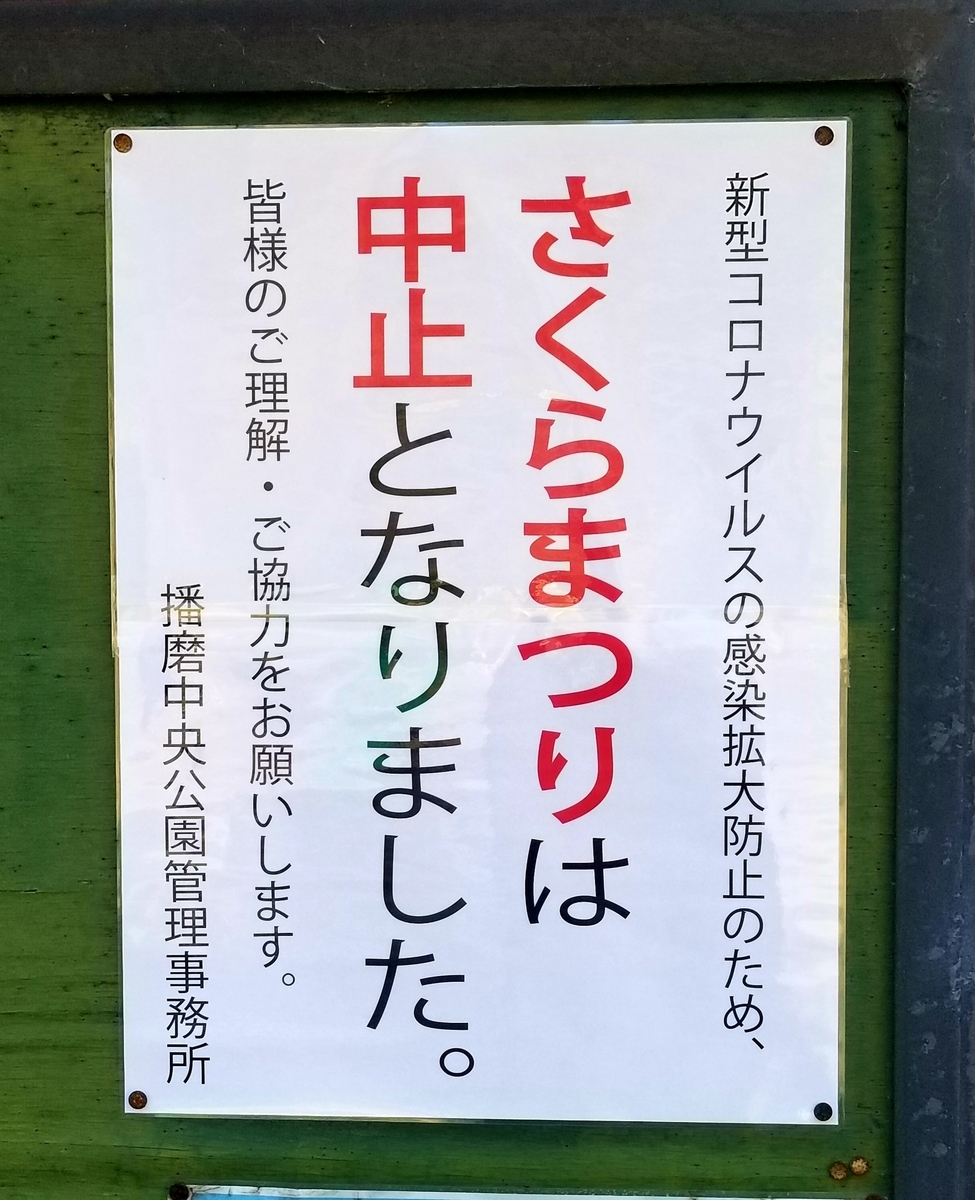 新型コロナウイルスの感染拡大防止のため、
さくらまつりは
中止となりました。
皆様のご理解・ご協力をお願いします。
播磨中央公園管理事務所